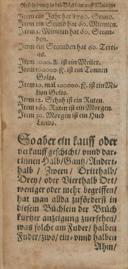 Item ein Jahr hat 8760. Stund.
Item ein Stund hat 60. Minuten.
Item 1. Minuten hat 60. Secunden.
Item ein Secunden hat 60. Tertias.
Item 1000. ist ein
Item 100000 ist ein Tonnen
Golds.
Item 10. mal 100000. ist ein
Golds.
Item 12. Schuh ist ein Ruten.
Item ein Morgen.
Item 30. Morgen ist ein Hueb
Lands.
So aber ein kauff oder
verkauff geschicht / vnnd darinnen
Halb / Gantz / Anderthalb
/ Zween / Dritthalb /
Drey / oder Vierthalb Ort /
weniger oder mehr begriffen /
hat man allda zuförderst in
diesem Büchlein der Brüch
kurtzer anzeigung zuersehen /
was solche am Fuder / halben
Fuder / zwo / ein / vnnd halben
Ahm /